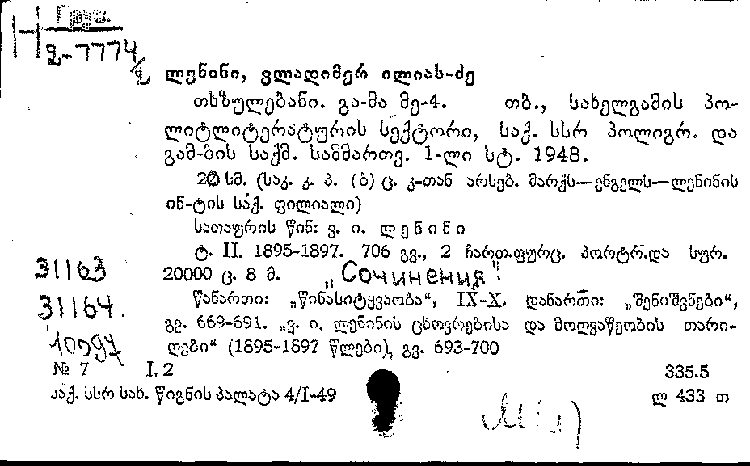 Груз.
2-7774
ლენინი, ვლადიმერ ილიას-ძე
თხზულებანი. გა-მა მე-4. თბ., სახელგამის პო-
ლიტლიტერატურის სექტორი, საქ. სსრ პოლიგრ. და
გამ-ბის საქმ. სამმართვ. 1-ლი სტ. 1948.
20 სმ. (საკ. კ. პ. (ბ) ც. კ-თან არსებ. მარქს—ენგელს—ლენინის
ინ-ტის საქ. ფილიალი)
სათაურის წინ: ვ. ი. ლენინი
ტ. II. 1895-1897. 706 გვ., 2 ჩართ.ფურც. პორტრ.და სურ.
31163
20000 ც. 8 მ. „Сочинения"
31164.
წანართი: „წინასიტყვაობა“, IX-X. დანართი: „შენიშვნები“,
გვ. 669-691. „ვ. ი. ლენინის ცხოვრებისა და მოღვაწეობის თარი-
ღები“ (1895-1897 წლები), გვ. 693-700
№ 7 I. 2 335.5
საქ. სსრ სახ. წიგნის პალატა 4/I-49 ლ 433 თ